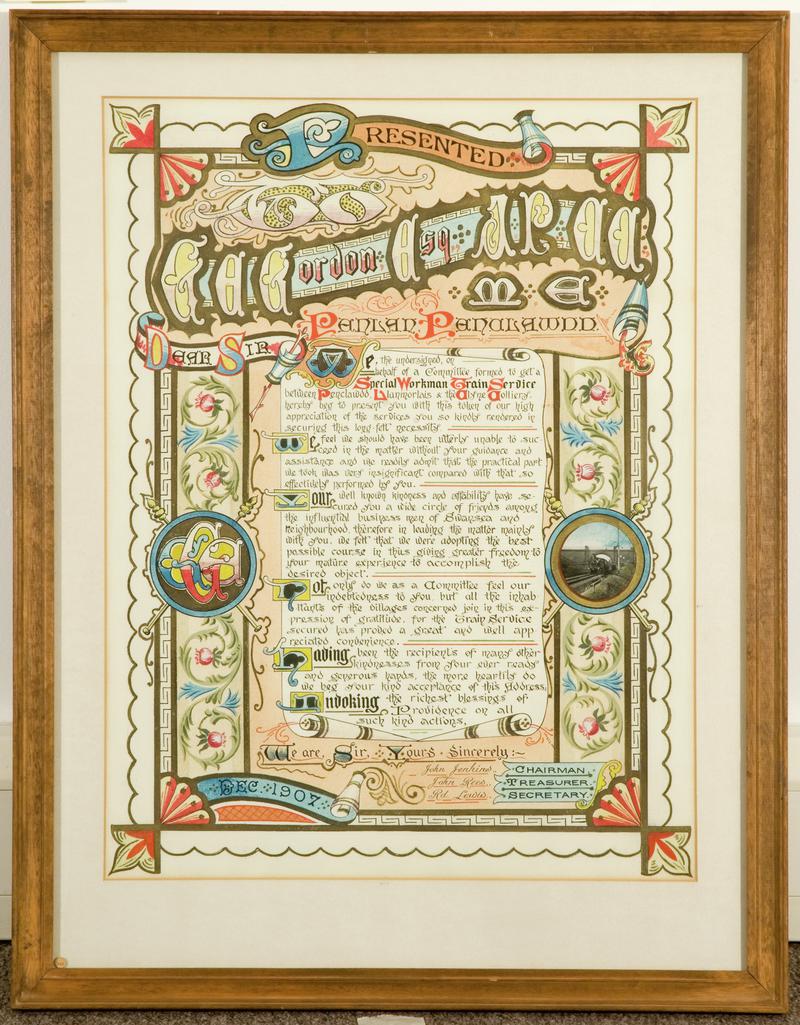 PRESENTED
To
Gordon, Esq. J.P. C.C.
M E
PENLAN, PENCLAWDD.
DEAR SIR,
We, the undersigned, on
behalf of a Committee formed to get a
Special Workman Train Service
between Penclawdd, Llanmorlais & the Colliery,
hereby beg to present you with this token of our high
appreciation of the services you so kindly rendered in
securing this long felt necessity
We feel we should have been utterly unable to suc
ceed in the matter without your guidance and
assistance and we readily admit that the practical part
we took was very insignificant compared with that so
effectively performed by you.
Your well known kindness and affability have se-
cured you a wide circle of friends among
the influential business men of Swansea and
neighbourhood, therefore in leading the matter mainly
with you, we felt that we were adopting the best
possible course in thus giving greater freedom to
your mature experience to accomplish the
desired object.
Not only do we as a Committee feel our
indebtedness to you but all the inhab
itants of the villages concerned join in this ex-
pression of gratitude, for the Train Service
secured has proved a great and well app
reciated convenience.
Having been the recipients of many other
kindnesses from your ever ready
and generous hands, the more heartily do
we beg your kind acceptance of this Address,
Invoking the richest blessings of
Providence on all
such kind actions,
We are, Sir, Yours Sincerely:~
John Jenkins. CHAIRMAN
John Rees. TREASURER.
Rd. Lewis. SECRETARY.
DEC. 1907.